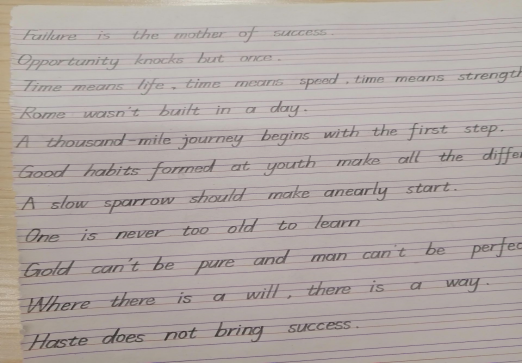 Failure is the mother of success.
Opportunity knocks but once.
Time means life, time means speed, time means strength
Rome wasn't built in a day.
A thousand-mile journey begins with the first step.
Good habits formed at youth make all the
A slow sparrow should make anearly start.
One is never too old to learn
Gold can't be pure and man can't be
Where there is a will, there is a way.
Haste does not bring success.